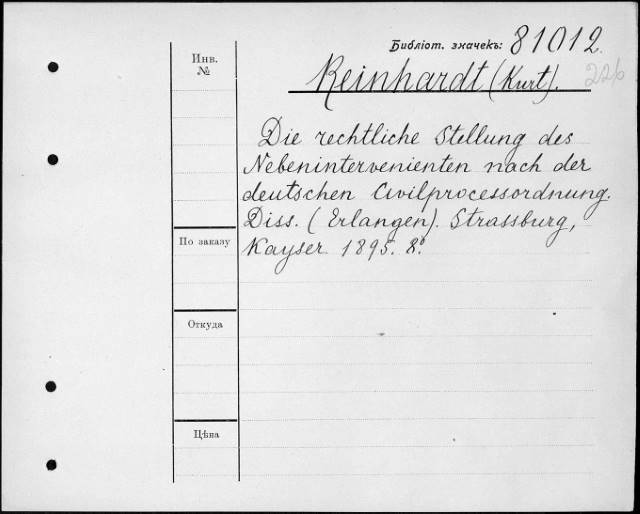 Библіот. значекъ: 81012.
Инв.
№
Reinhardt (Kurt).
226
Die rechtliche Stellung des
Nebenintervenienten nach der
deutschen Civilprocessordnung.
Diss. (Erlangen). Strassburg,
Kayser 1895. 8°.
По заказу
Откуда
Цѣна